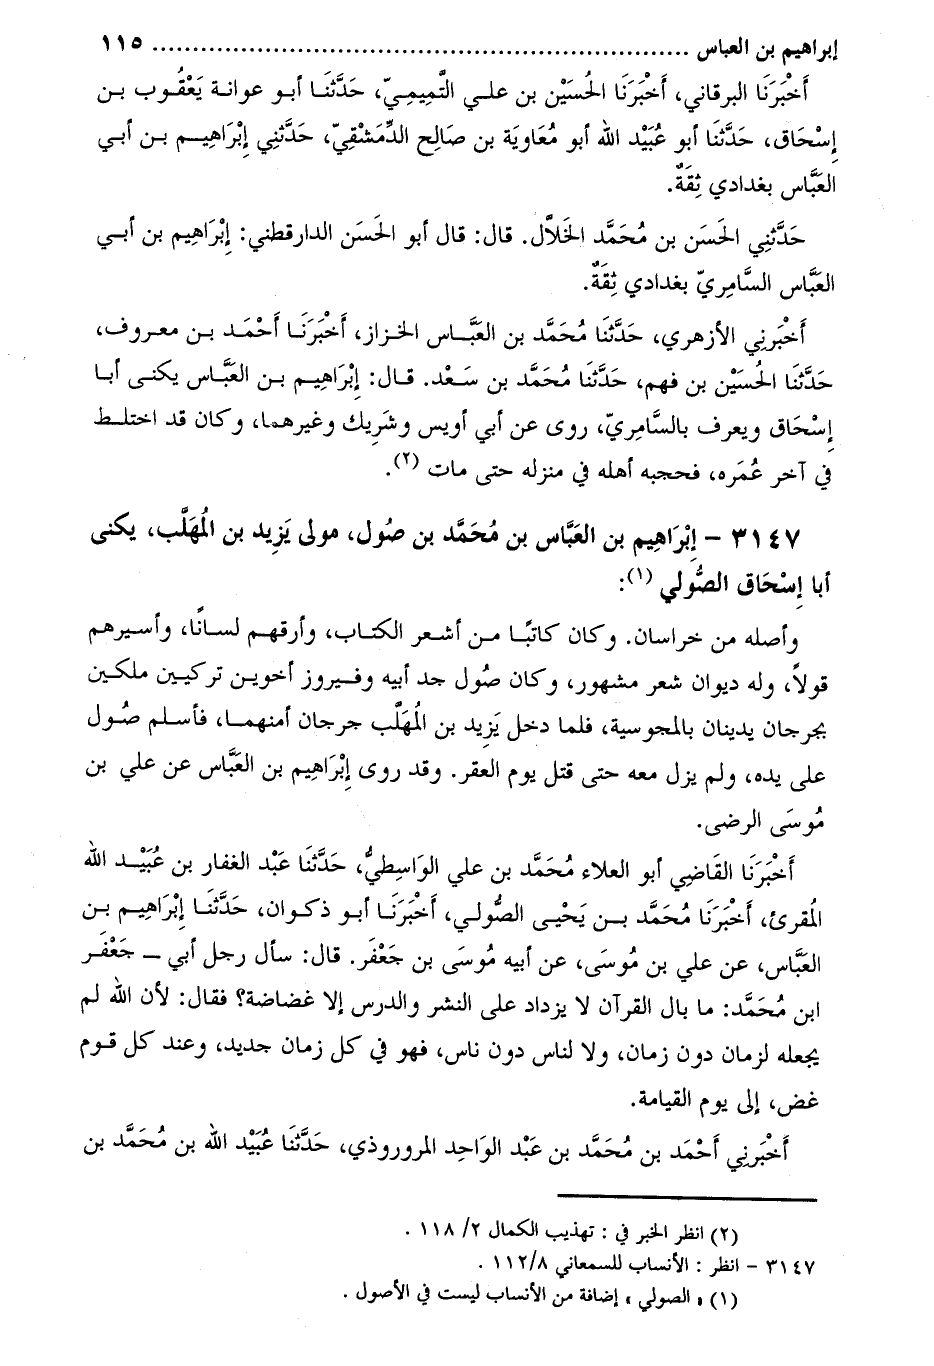 إبراهيم بن العباس ................................................................... ١١٥
أَخْبَرَنَا البرقاني، أَخْبَرَنَا الحُسَيْن بن علي التَّمِيمِيّ، حَدَّثنَا أبو عوانة يَعْقُوب بن
إِسْحَاق، حَدَّثنَا أبو عُبَيْد الله أبو مُعَاوِيَة بن صَالِح الدِّمَشْقِيّ، حَدَّثَنِي إِبْرَاهِيم بن أبي
العَبَّاس بغدادي ثِقَةٌ.
حَدَّثَنِي الحَسَن بن مُحَمَّد الخَلَّال. قال: قال أبو الحَسَن الدارقطني: إِبْرَاهِيم بن أبي
العَبَّاس السَّامِرِيّ بغدادي ثِقَةٌ.
أَخْبَرَنِي الأزهري، حَدَّثَنَا مُحَمَّد بن العَبَّاس الخزاز، أَخْبَرَنَا أَحْمَد بن معروف،
حَدَّثَنَا الحُسَيْن بن فهم، حَدَّثَنَا مُحَمَّد بن سَعْد. قال: إِبْرَاهِيم بن العَبَّاس يكنى أبا
إِسْحَاق ويعرف بالسَّامِرِيّ، روى عن أبي أويس وشَرِيك وغيرهما، وكان قد اختلط
في آخر عُمَره، فحجبه أهله في منزله حتى مات (٢).
٣١٤٧ - إِبْرَاهِيم بن العَبَّاس بن مُحَمَّد بن صُول، مولى يَزِيد بن المُهَلَّب، يكنى
أبا إِسْحَاق الصُّولي (١):
وأصله من خراسان. وكان كاتبًا من أشعر الكتاب، وأرقهم لسانًا، وأسيرهم
قولاً، وله ديوان شعر مشهور، وكان صُول جد أبيه وفيروز أخوين تركيين ملكين
بجرجان يدينان بالمجوسية، فلما دخل يَزِيد بن المُهَلَّب جرجان أمنهما، فأسلم صُول
على يده، ولم يزل معه حتى قتل يوم العقر. وقد روى إِبْرَاهِيم بن العَبَّاس عن علي بن
مُوسَى الرضى.
أَخْبَرَنَا القَاضِي أبو العلاء مُحَمَّد بن علي الوَاسِطِيُّ، حَدَّثَنَا عَبْد الغفار بن عُبَيْد الله
المُقرئ، أَخْبَرَنَا مُحَمَّد بن يَحْيى الصُّولي، أَخْبَرَنَا أبو ذكوان، حَدَّثَنَا إِبْرَاهِيم بن
العَبَّاس، عن علي بن مُوسَى، عن أبيه مُوسَى بن جَعْفَر. قال: سأل رجل أبي – جَعْفَر
ابن مُحَمَّد: ما بال القرآن لا يزداد على النشر والدرس إلا غضاضة؟ فقال: لأن الله لم
يجعله لزمان دون زمان، ولا لناس دون ناس، فهو في كل زمان جديد، وعند كل قوم
غض، إلى يوم القيامة.
أَخْبَرَنِي أَحْمَد بن مُحَمَّد بن عَبْد الوَاحِد المروروذي، حَدَّثَنَا عُبَيْد الله بن مُحَمَّد بن
(٢) انظر الخبر في : تهذيب الكمال ٢/ ١١٨ .
٣١٤٧ - انظر : الأنساب للسمعاني ١١٢/٨ .
(١) « الصولي » إضافة من الأنساب ليست في الأصول .